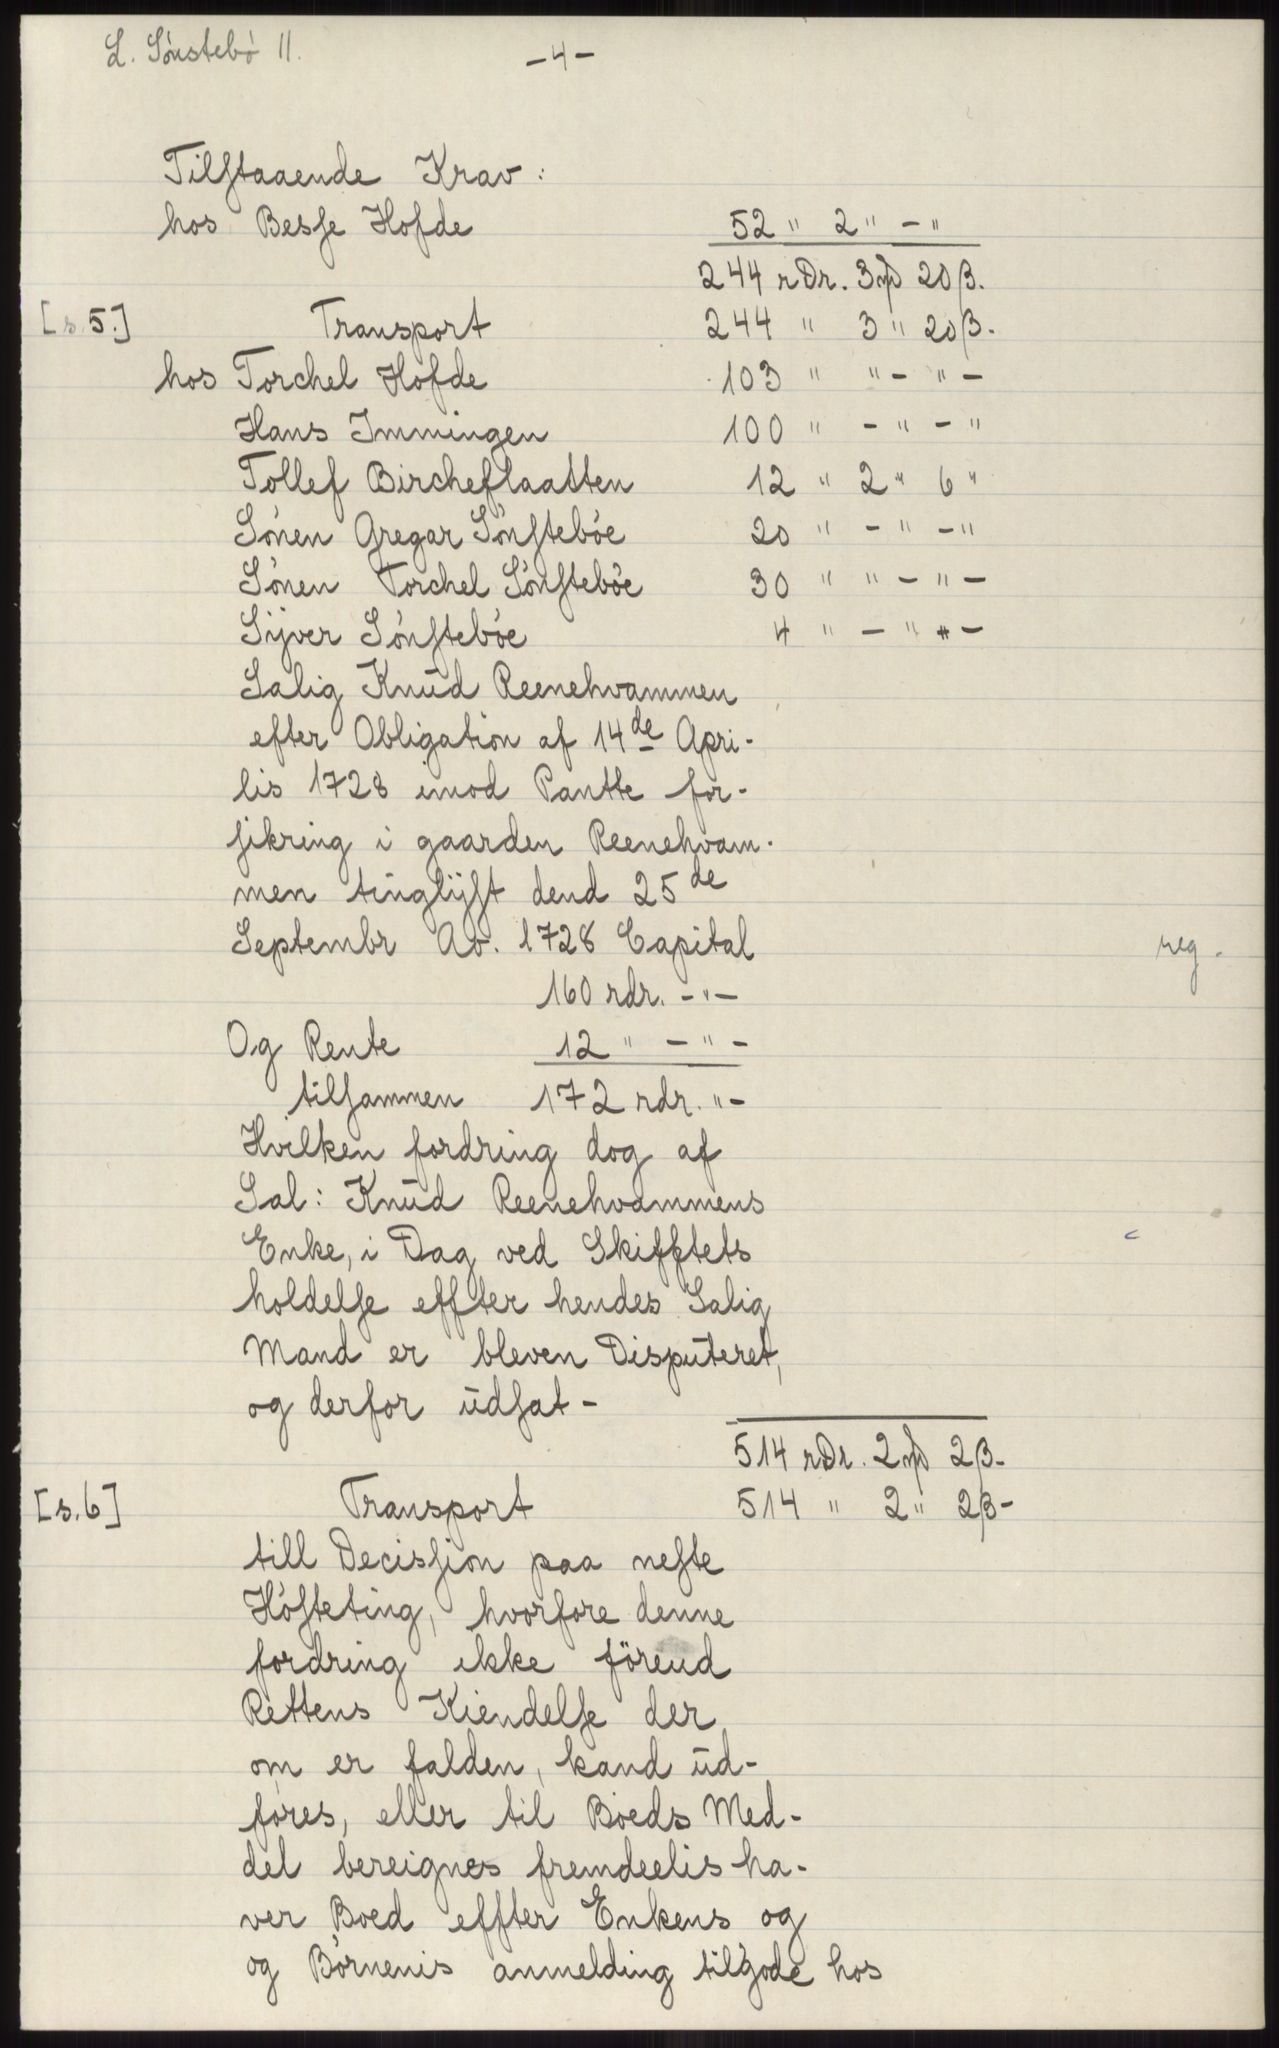 L. Sönstebö 11.
-4-
Tilstaaende Krav:
hos Besse Hofde 52 " 2 " - "
244 rDr. 3 mk 20 β.
[s. 5.] Transport 244 " 3 " 20 β.
hos Torchel Hofde 103 " " - " -
Hans Immingen 100 " - " - "
Tollef Bircheflaatten 12 " 2 " 6 "
Sönen Gregar Sönsteböe 20 " - " - "
Sönen Torchel Sönsteböe 30 " " - " -
Sÿver Sönsteböe 4 " - " " -
Salig Knud Reenehvammen
efter Obligation af 14de Apri-
lis 1728 imod Pantte for-
sikring i gaarden Reenehvam-
men tinglÿst dend 25de
Septembr Ao. 1728 Capital
reg.
160 rdr. - " -
Og Rente 12 " - " -
tilsammen 172 rdr. " -
Hvilken fordring dog af
Sal: Knud Reenehvammens
Enke, i Dag ved Skifftets
holdelse effter hendes Salig
Mand er bleven Disputeret,
og derfor udsat -
514 rDr. 2 mk 2 β.
[s. 6] Transport 514 " 2 " 2 β -
till Decission paa neste
Hösteting, hvorfore denne
fordring ikke förend
Rettens Kiendelse der
om er falden, kand ud-
föres, eller til Boeds Med-
del bereignes fremdeelis ha-
ver Boed effter Enkens og
og Börnenis anmelding tilgode hos